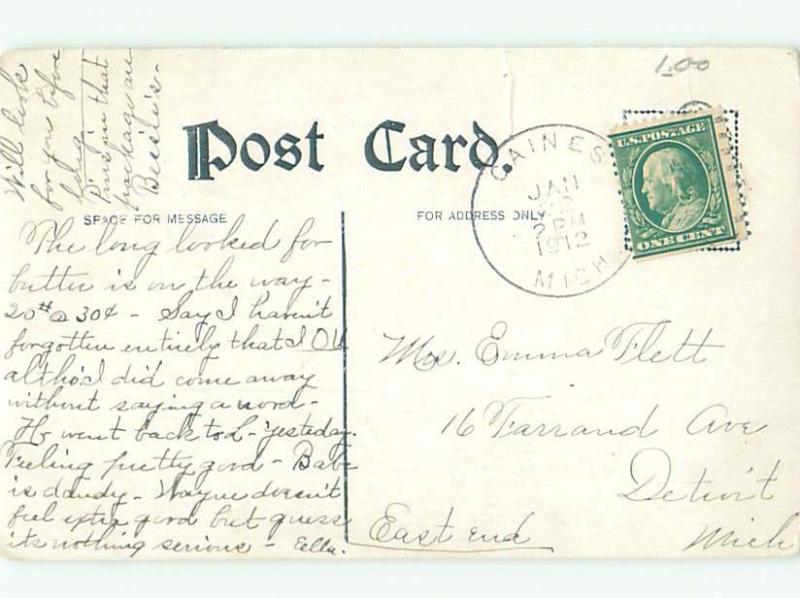 1.00
Will look
for you before
long
Pins in that
package are
Bessie's -
Post Card.
SPACE FOR MESSAGE
FOR ADDRESS ONLY
GAINES
JAN
2 PM
1912
MICH.
U.S. POSTAGE
ONE CENT
The long looked for
butter is on the way -
20# @ 30¢ - Say I haven't
forgotten entirely that I OU
altho' I did come away
without saying a word -
H- went back to L- yesterday.
Feeling pretty good - Babe
is dandy - Wayne doesn't
feel extra good but guess
its nothing serious - Ella.
Mrs. Emma Flett
16 Farrand Ave
Detroit
Mich
East end